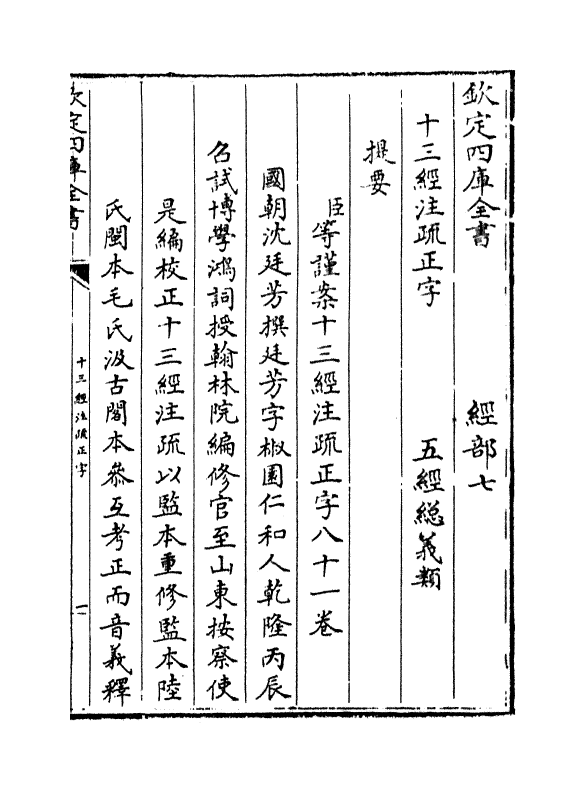 欽定四庫全書 經部七
十三經注疏正字 五經總義類
提要
臣等謹案十三經注疏正字八十一卷
國朝沈廷芳撰廷芳字椒園仁和人乾隆丙辰
召試博學鴻詞授翰林院編修官至山東按察使
是編校正十三經注疏以監本重修監本陸
氏閩本毛氏汲古閣本叅互考正而音義釋
欽定四庫全書
十三經注疏正字
一